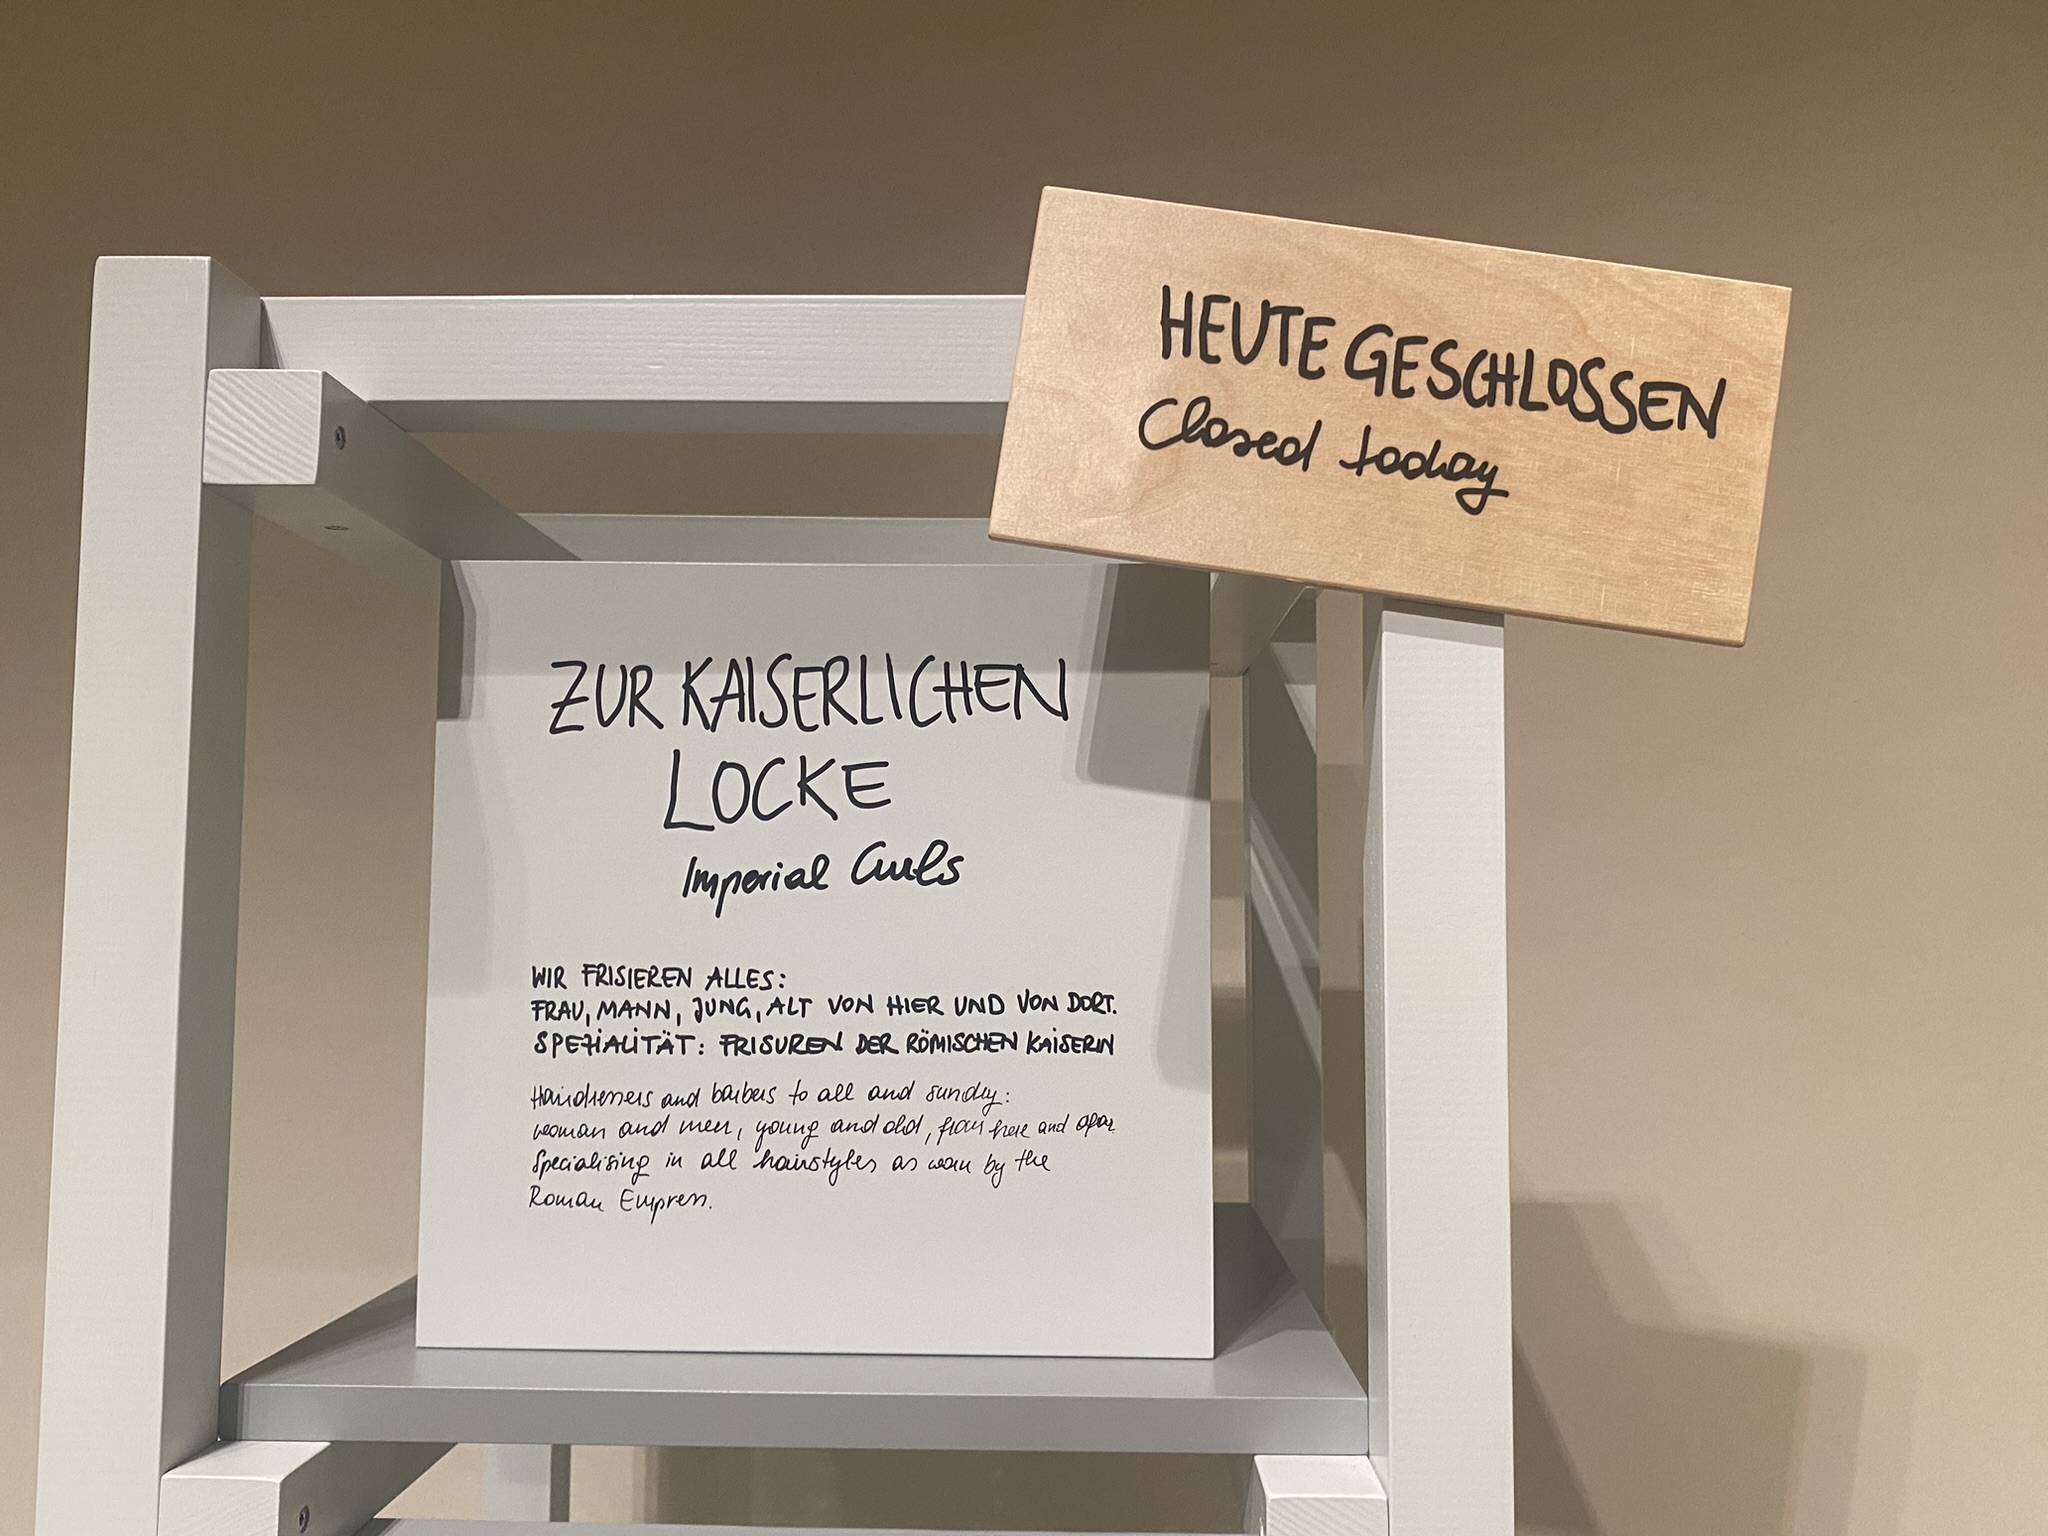 HEUTE GESCHLOSSEN
Closed today
ZUR KAISERLICHEN
LOCKE
Imperial Curls
WIR FRISIEREN ALLES:
FRAU, MANN, JUNG, ALT VON HIER UND VON DORT.
SPEZIALITÄT: FRISUREN DER RÖMISCHEN KAISERIN
Hairdressers and barbers to all and sundry:
woman and men, young and old, from here and afar.
Specialising in all hairstyles as worn by the
Roman Empress.